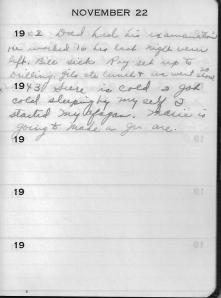 NOVEMBER 22
1942 Dad had his examination
He worked to his last night
left. Bill sick Ray set up to
Drilling. Flo ate lunch & we went to show
1943 Sure is cold I got
cold sleeping by my self I
started my Afagan. Marie is
going to make a gr. are.
19
19
19